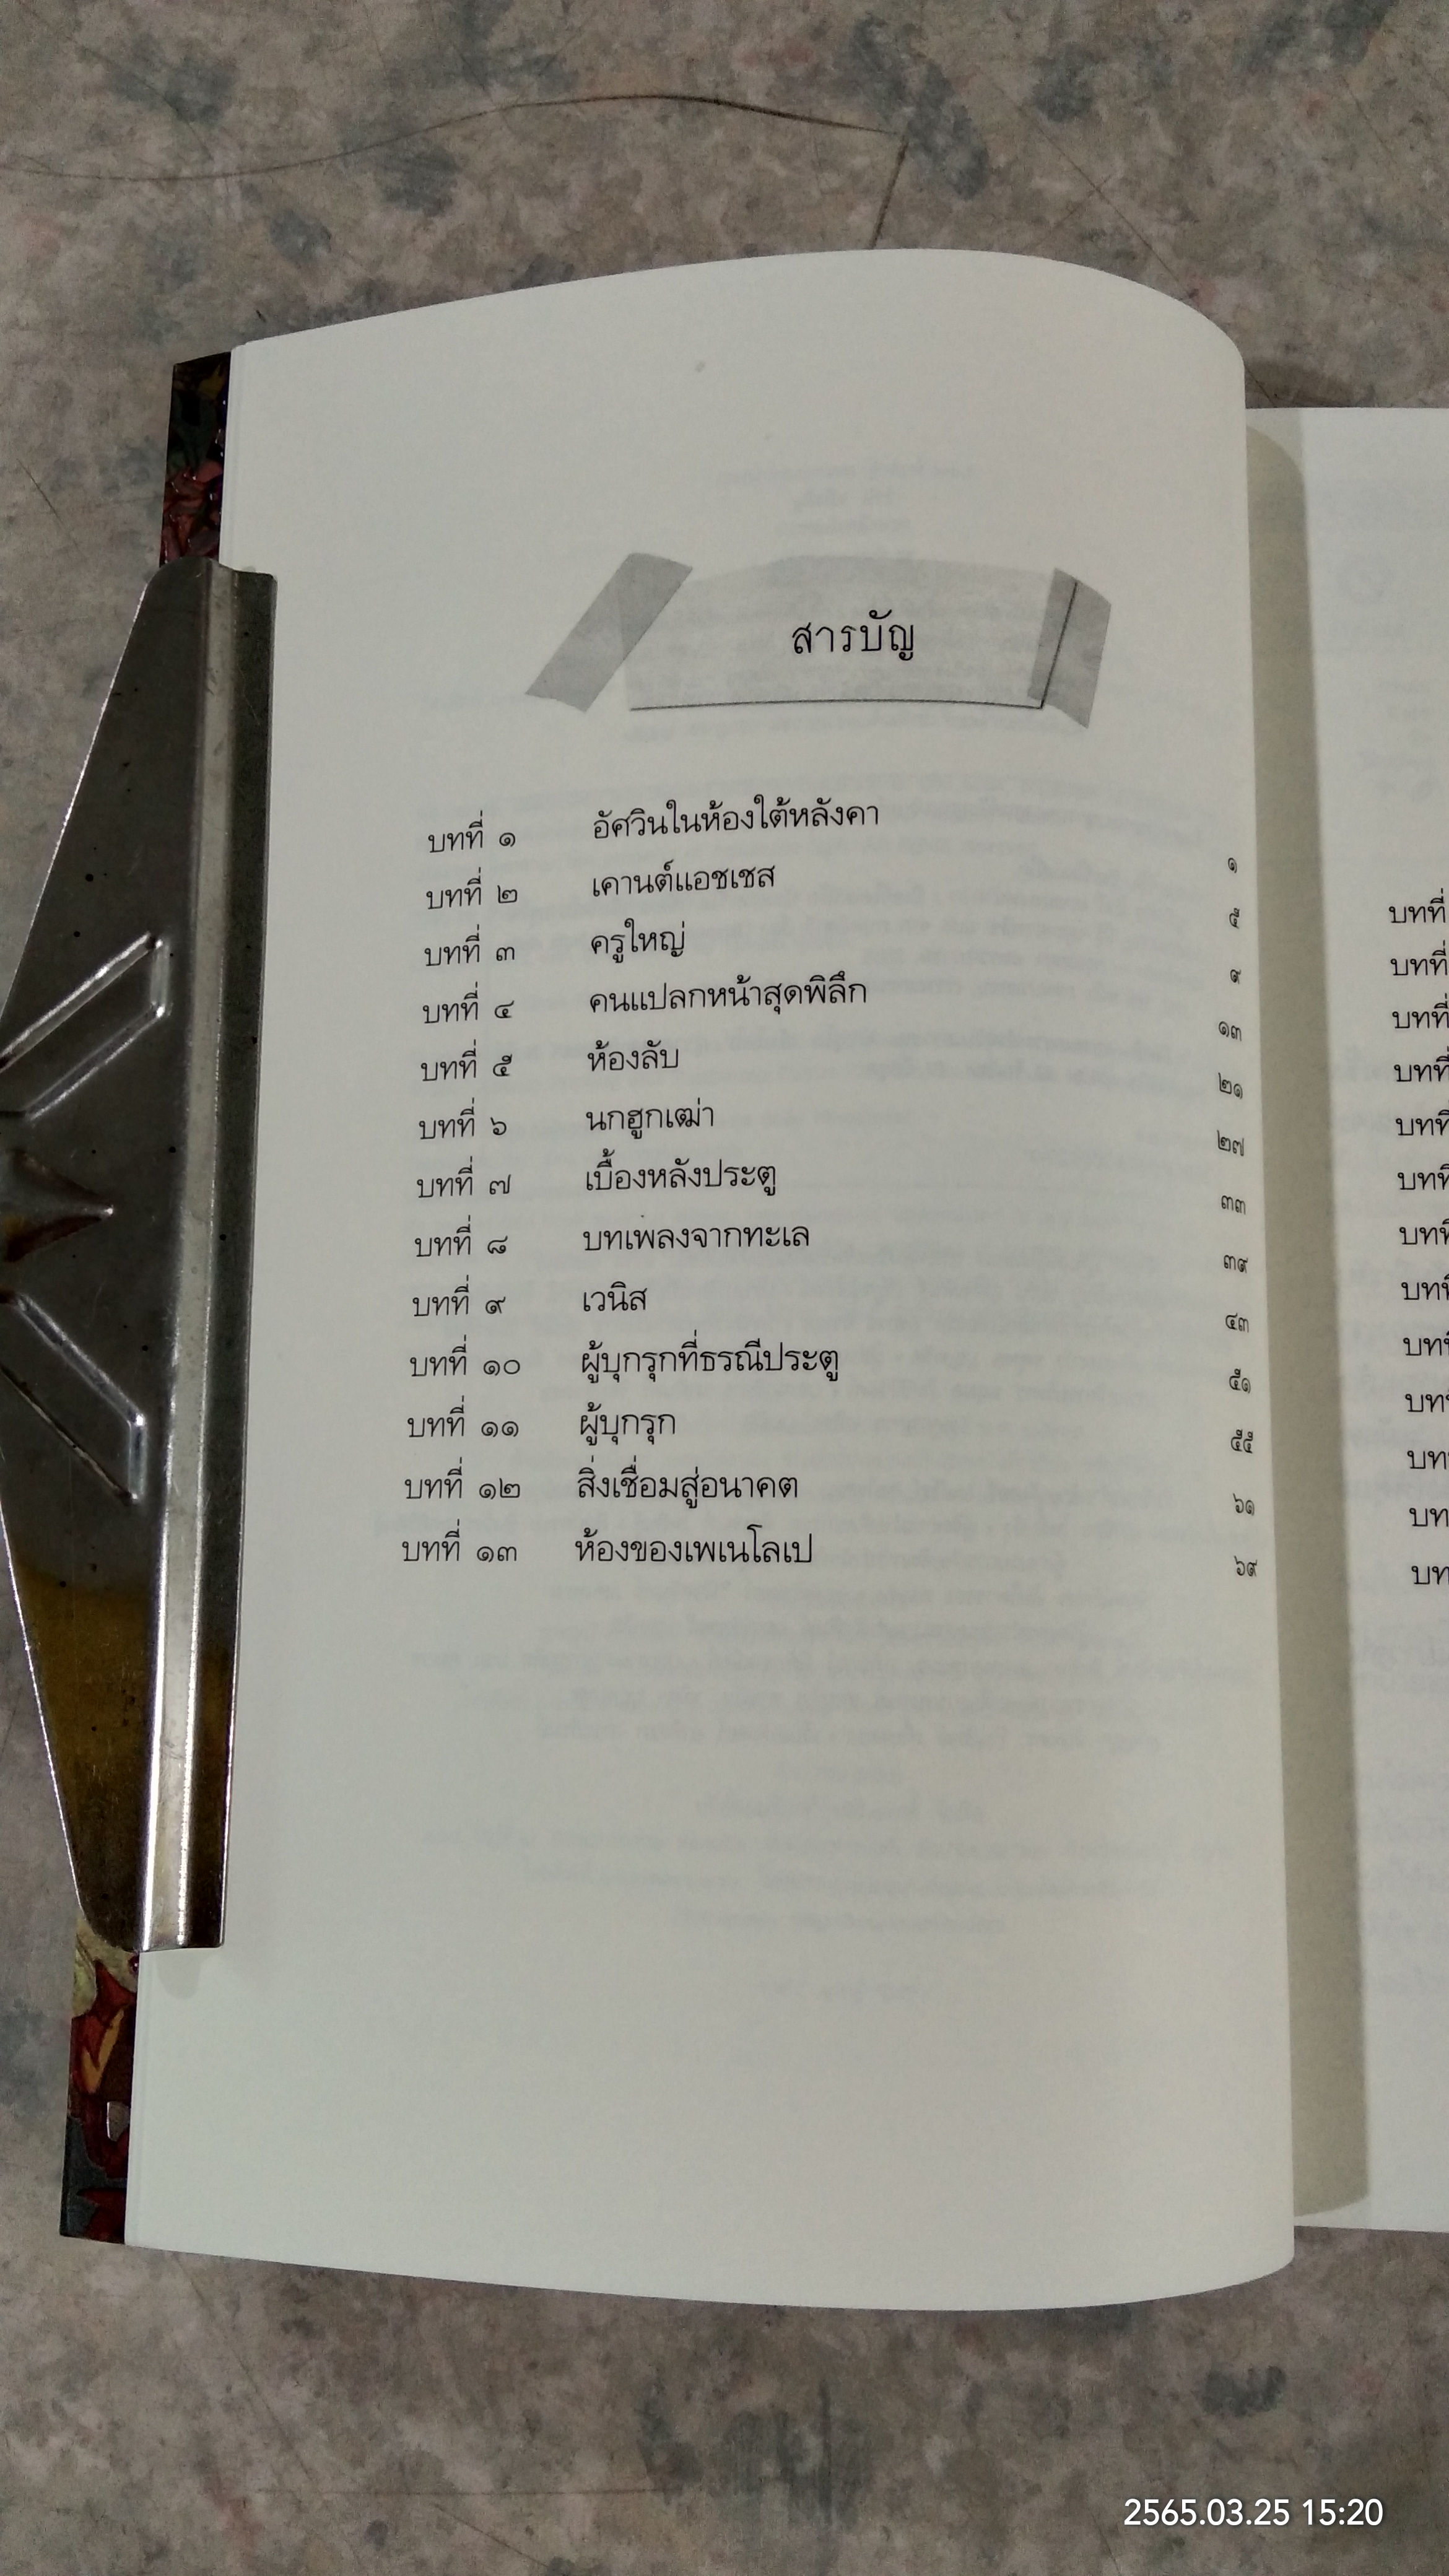 สารบัญ
บทที่ ๑ อัศวินในห้องใต้หลังคา ๑
บทที่ ๒ เคานต์แอชเชส ๕
บทที่ ๓ ครูใหญ่ ๙
บทที่ ๔ คนแปลกหน้าสุดพิลึก ๑๓
บทที่ ๕ ห้องลับ ๒๑
บทที่ ๖ นกฮูกเฒ่า ๒๗
บทที่ ๗ เบื้องหลังประตู ๓๓
บทที่ ๘ บทเพลงจากทะเล ๓๙
บทที่ ๙ เวนิส ๔๓
บทที่ ๑๐ ผู้บุกรุกที่ธรณีประตู ๕๑
บทที่ ๑๑ ผู้บุกรุก ๕๕
บทที่ ๑๒ สิ่งเชื่อมสู่อนาคต ๖๑
บทที่ ๑๓ ห้องของเพเนโลเป ๖๙
บทที่
บทที่
บทที่
บทที่
2565.03.25 15:20